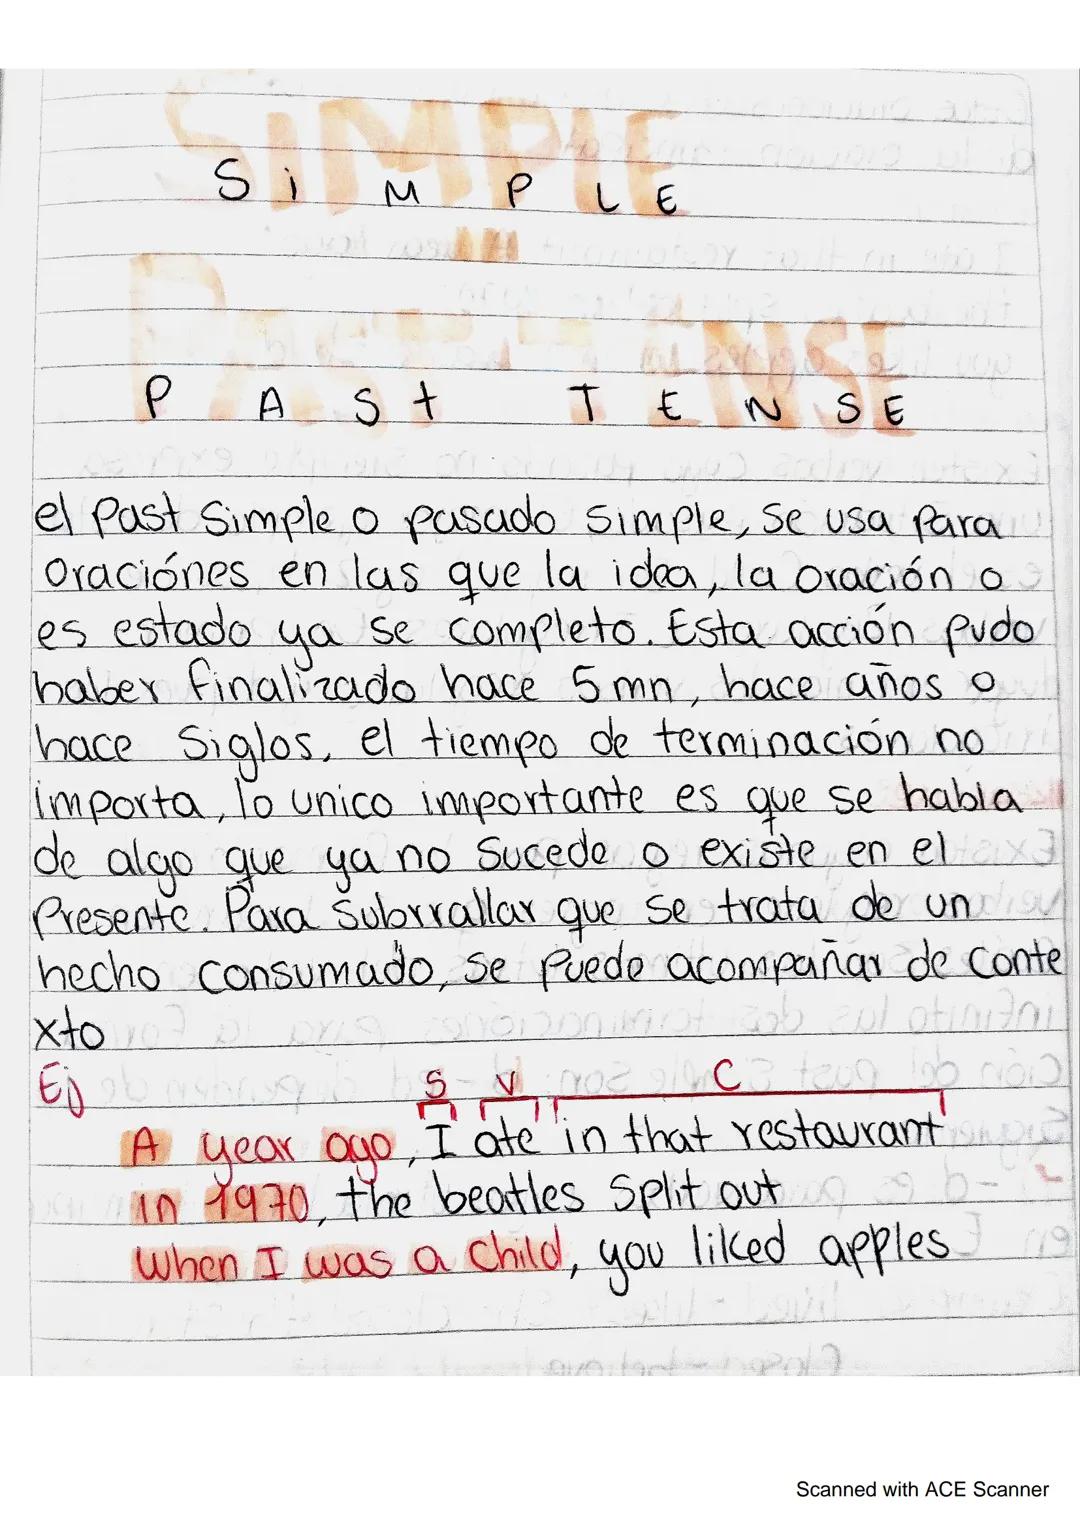 SiMPLE
SiMPLE
PAST TENSE
PASt TENSE
el Past Simple o pasado simple, se usa para
oraciónes en las que la idea, la oración o
es estado ya se completo. Esta acción pudo
haber finalizado hace 5 mn, hace años o
hace Siglos, el tiempo de terminación no
importa, lo unico importante es que se habla
de algo que ya no sucede o existe en el
Presente. Para Subrrallar que se trata de un
hecho consumado, se puede acompañar de conte
xto
Ej
S V C
A year ago, I ate in that restaurant
in 1970, the beatles split out
When I was a child, you liked apples
Scanned with ACE Scanner